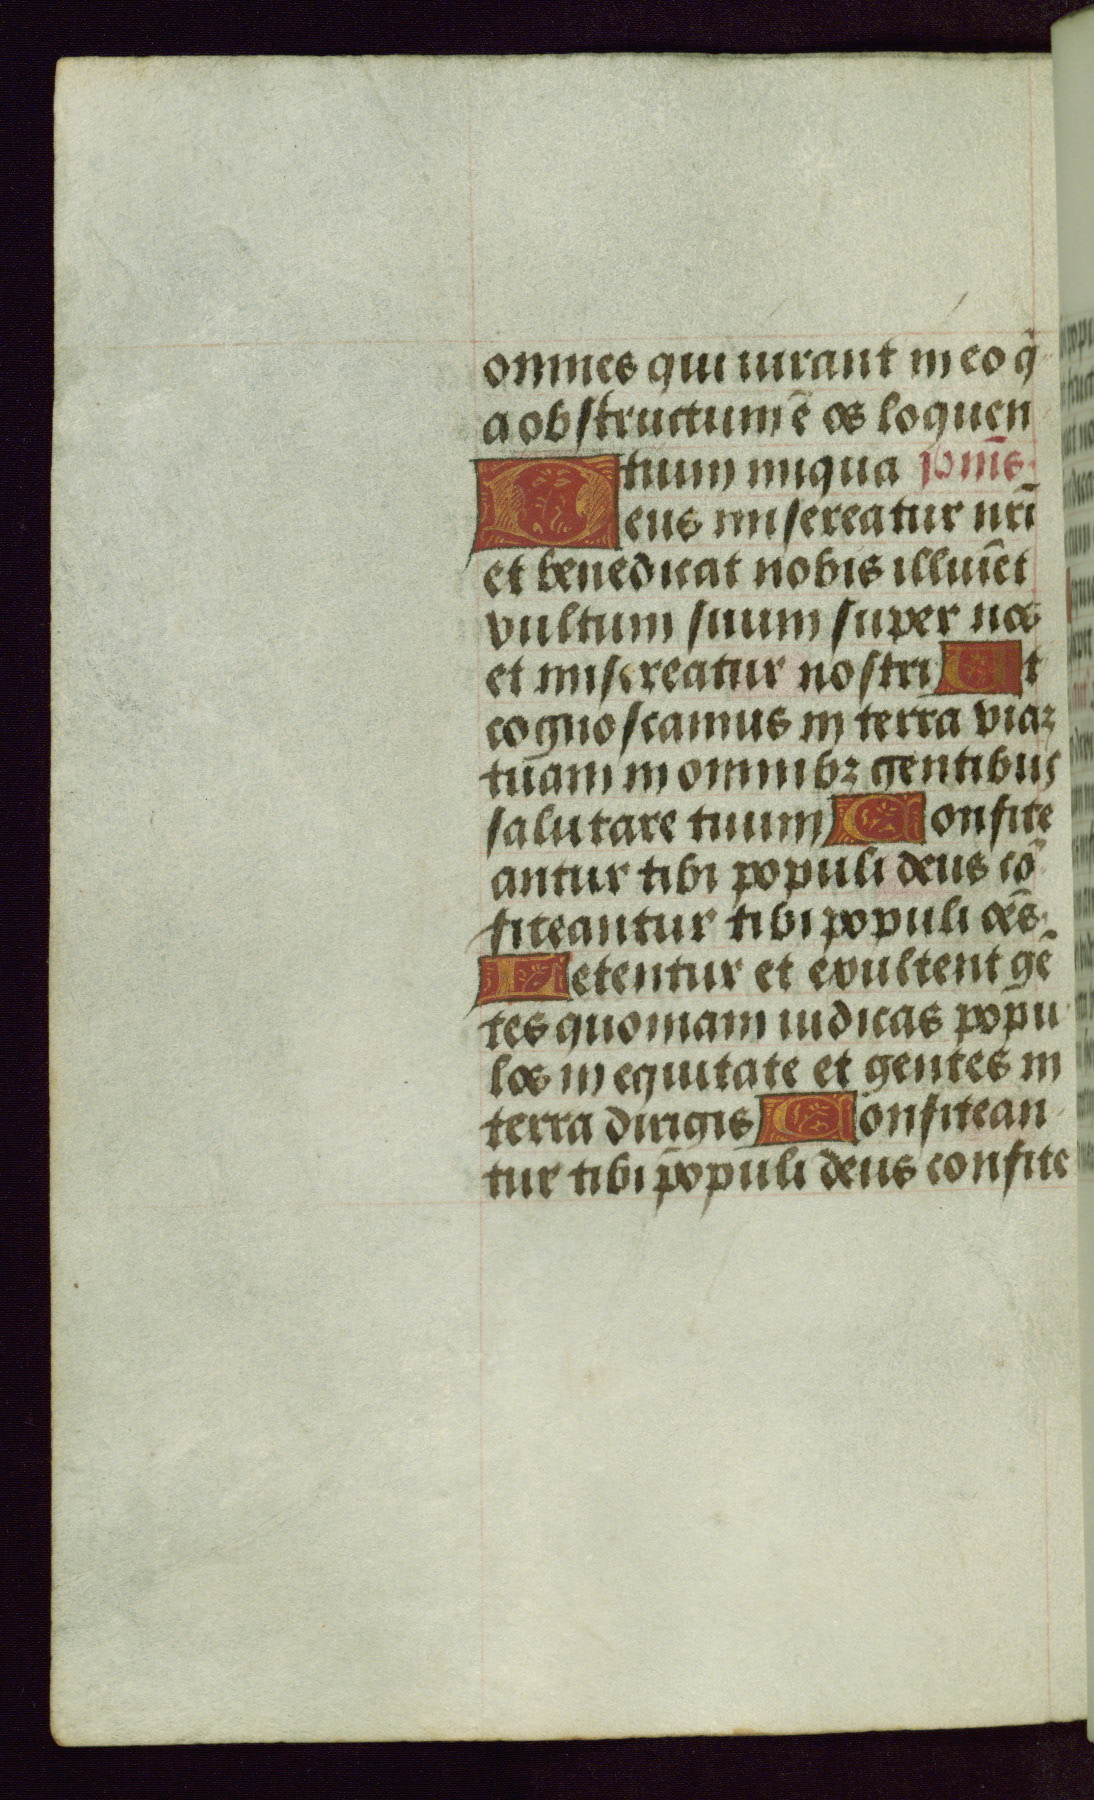 omnes qui iurant in eo q̄
a obstructum ē os loquen
tium iniqua ps̄ms.
Deus misereatur nr̄i
et benedicat nobis illuı̄et
vultum suum super nos
et misereatur nostri Ut
cognoscamus in terra viaꝫ
tuam in omnibꝫ gentibus
salutare tuum Confite
antur tibi populi deus cō
fiteantur tibi populi oēs.
Letentur et exultent gē
tes quoniam iudicas popu
los in equitate et gentes in
terra dirigis Confitean
tur tibi populi deus confite